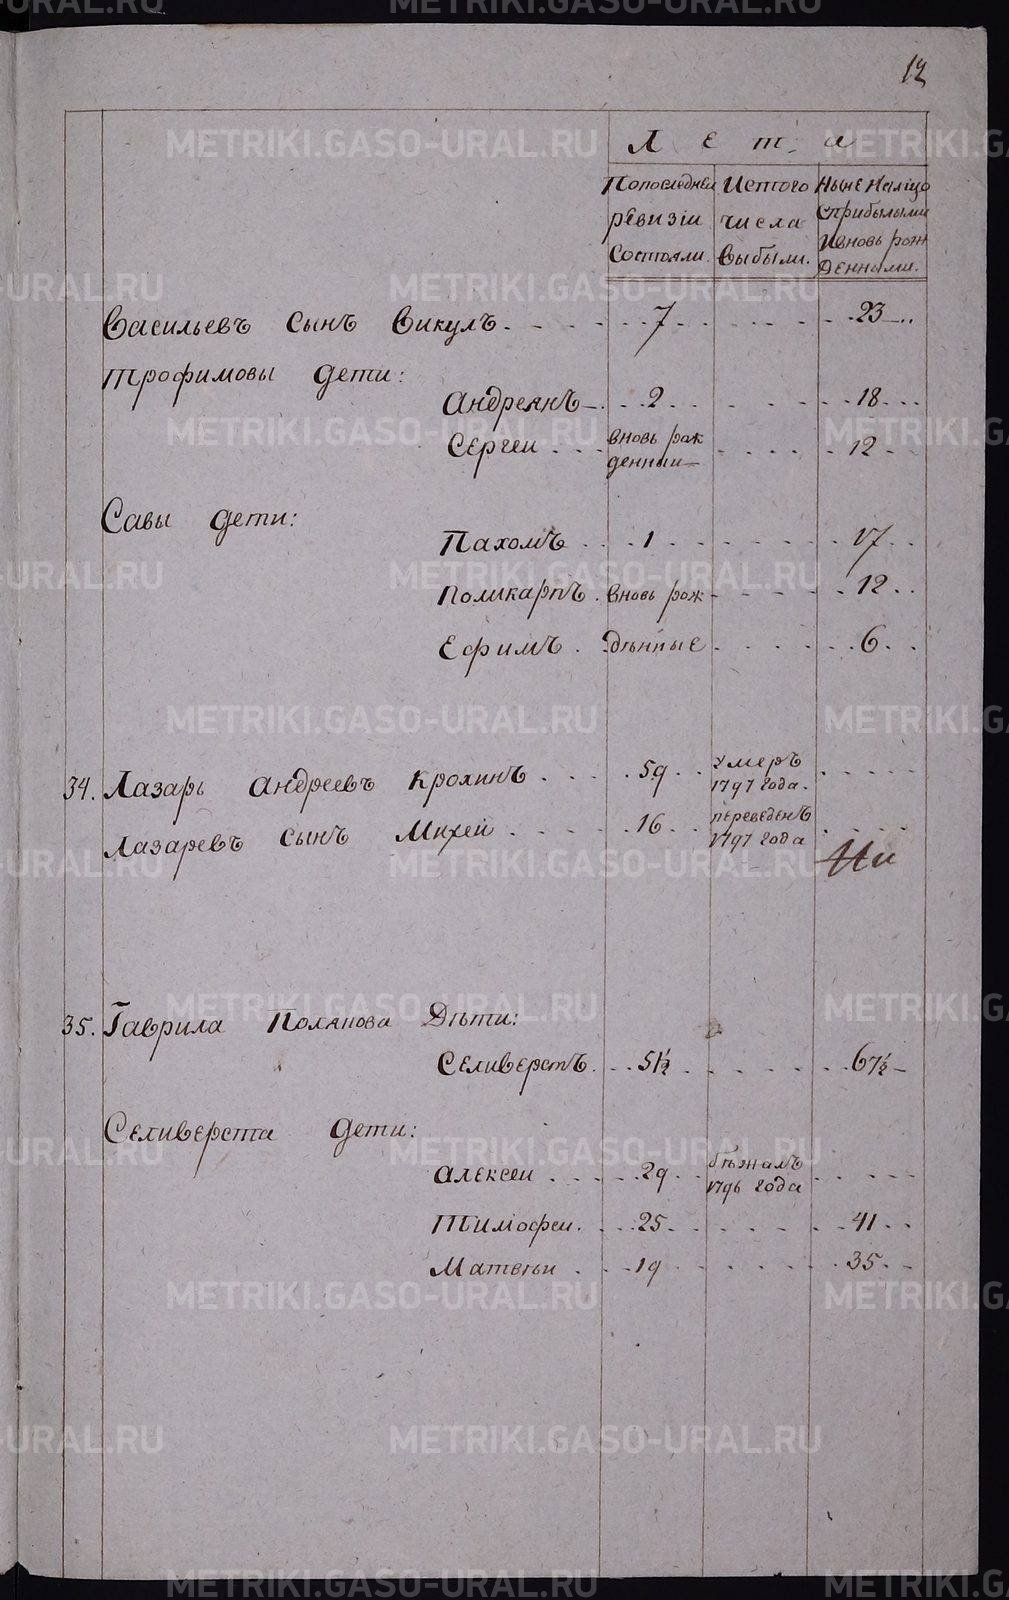 METRIKI.GASO-URAL.RU
12
Лета
Попоследней ревизiи состояли.
Истого числа выбыли.
Ныне Налiцо сприбылыми ивновь рожденными.
Васильевъ сынъ Викулъ 7 23
Трофимовы дети:
Андреянъ 2 18
Сергеи вновь рожденныи 12
Савы дети:
Пахомъ 1 17
Поликарпъ вновь рож 12
Ефимъ дѣнные 6
34. Лазарь Андреевъ Кролинъ 59 умеръ 1797 года.
Лазаревъ сынъ Михей 16 переведенъ 1797 года
35. Гаврила Полянова Дѣти:
Селиверстъ 51½ 67½
Селиверста дети:
Алексеи 29 бѣжалъ 1796 года
Тимофеи 25 41
Матвѣи 19 35